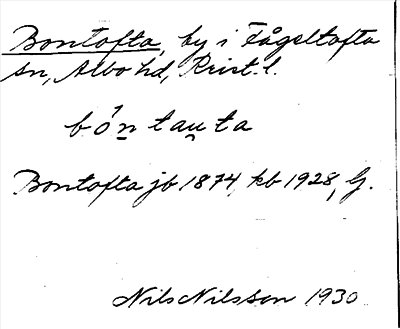 Bontofta, by i Fågeltofta
sn, Albo hd, Krist. l.
bón tau̯ta
Bontofta jb 1874, kb 1928, G.
Nils Nilsson 1930